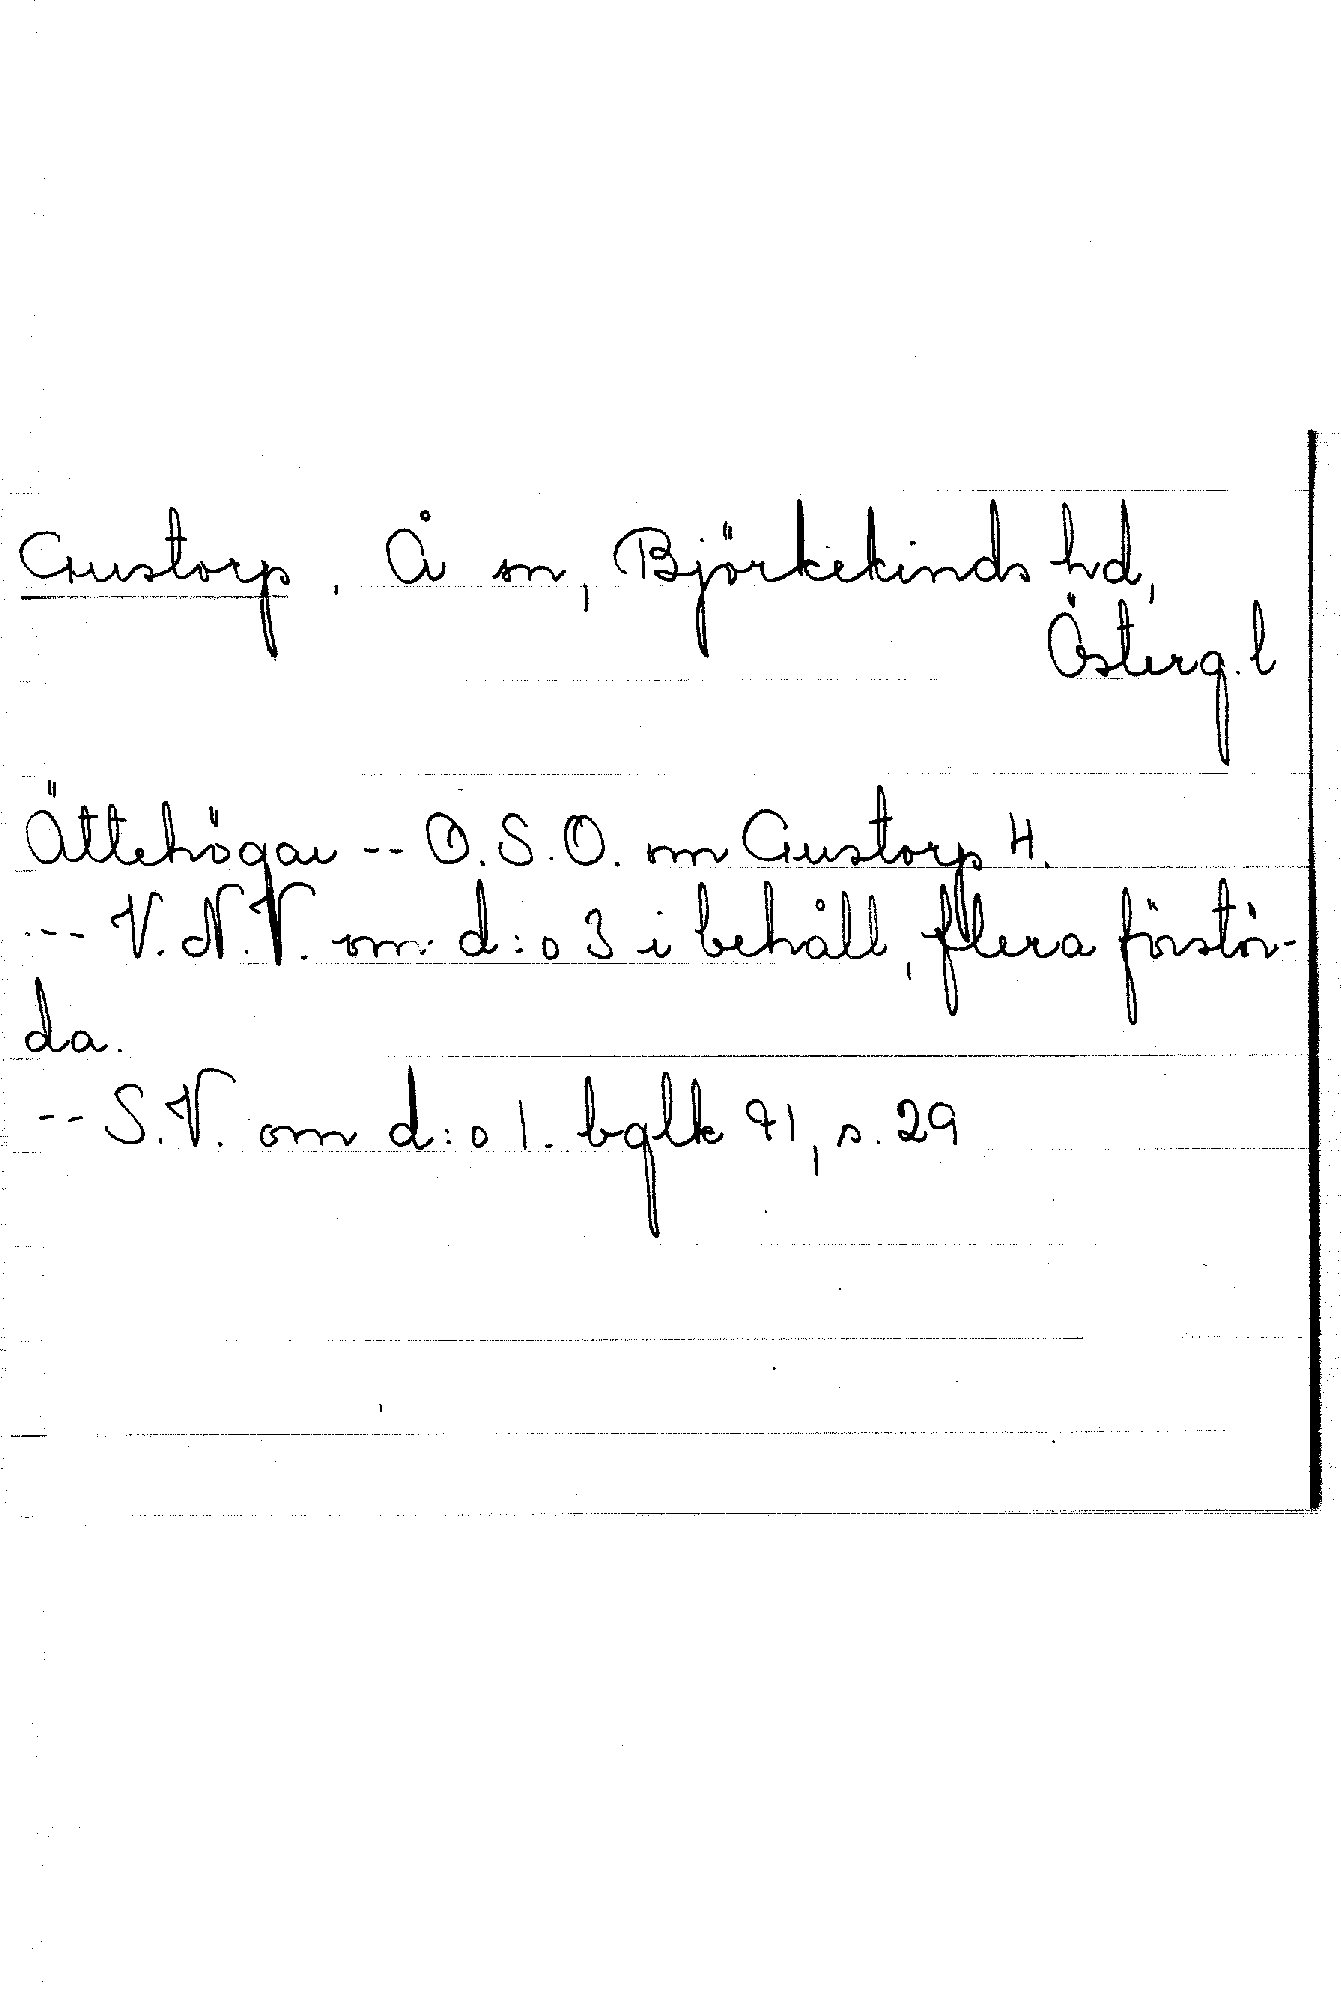 Gustorp, Å sn, Björkekinds hd,
Österg. l
Ättehögar -- O.S.O. om Gustorp 4.
--- V.N.V. om d:o 3 i behåll, flera förstör-
da.
-- S.V. om d:o 1. bglk 71, s. 29